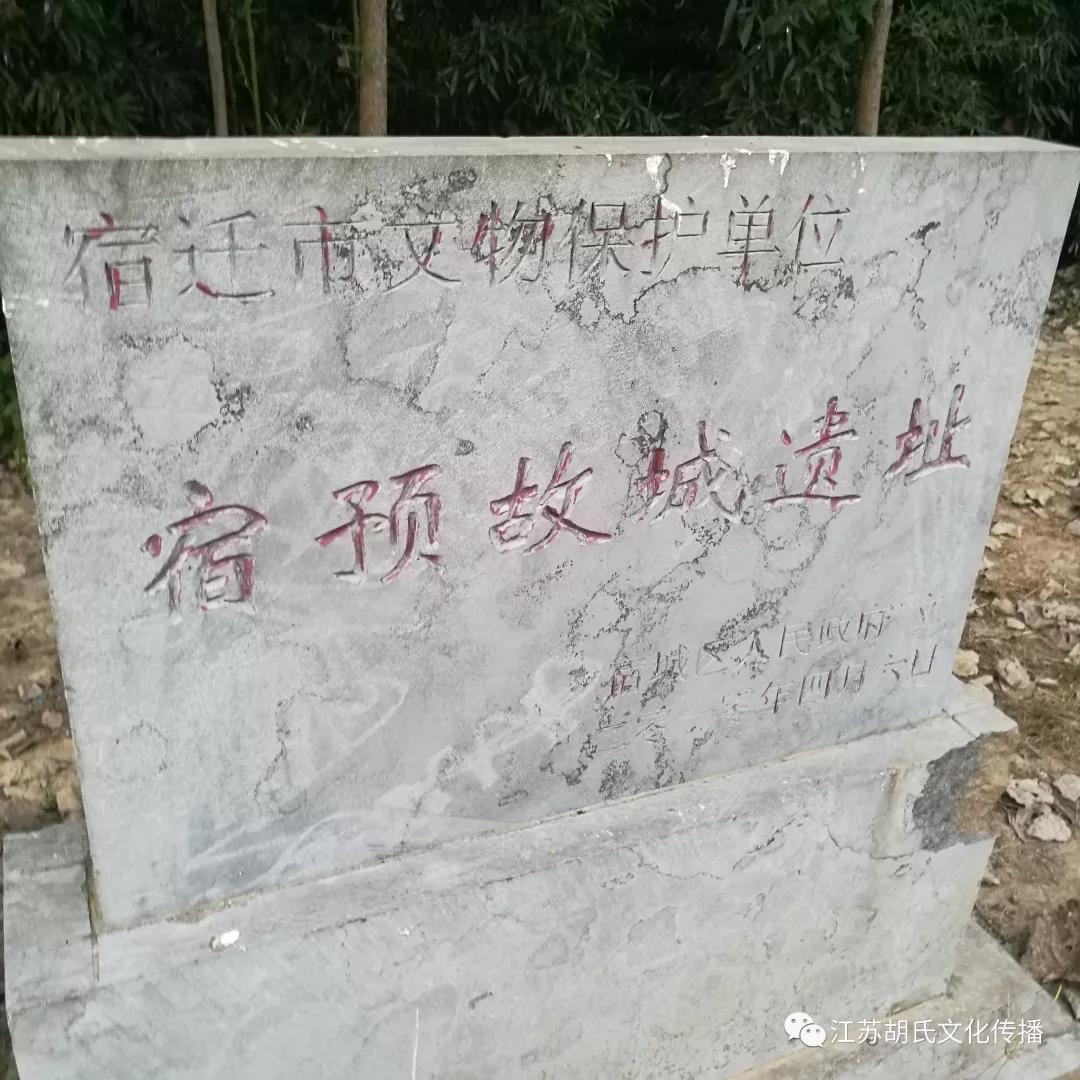 宿迁市文物保护单位
宿预故城遗址
宿城区人民政府 立
二零一 年四月六日
江苏胡氏文化传播